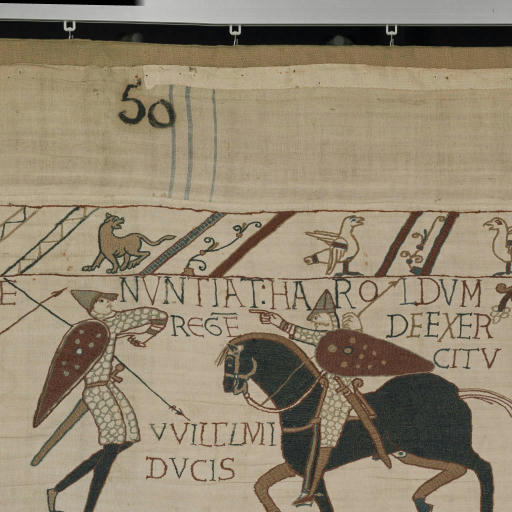 50
E NVNTIAT: HAROLDVM
REGE DEEXER
CITV
VVILLELMI
DVCIS